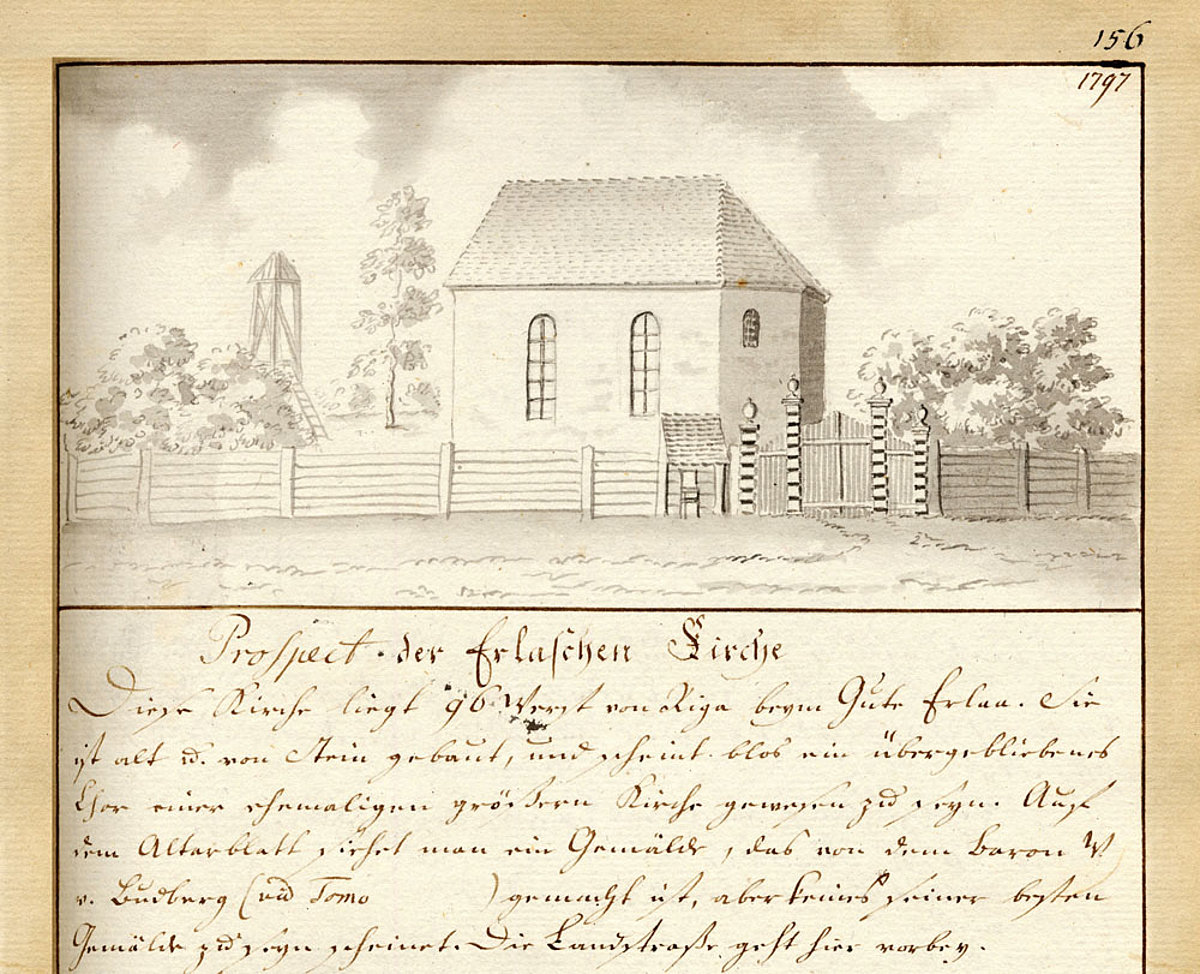 156
1797
Prospect der Erlaschen Kirche
Diese Kirche liegt 96 Werst von Riga beym Gute Erlaa. Sie
ist alt u. von Stein gebaut, und scheint blos ein übergebliebenes
Chor einer ehemaligen größern Kirche gewesen zu seyn. Auf
dem Altarblatt siehet man ein Gemälde, das von dem Baron W
v. Budberg (vid Tomo ) gemacht ist, aber keines seiner besten
Gemälde zu seyn scheinet. Die Landstraße geht hier vorbey.